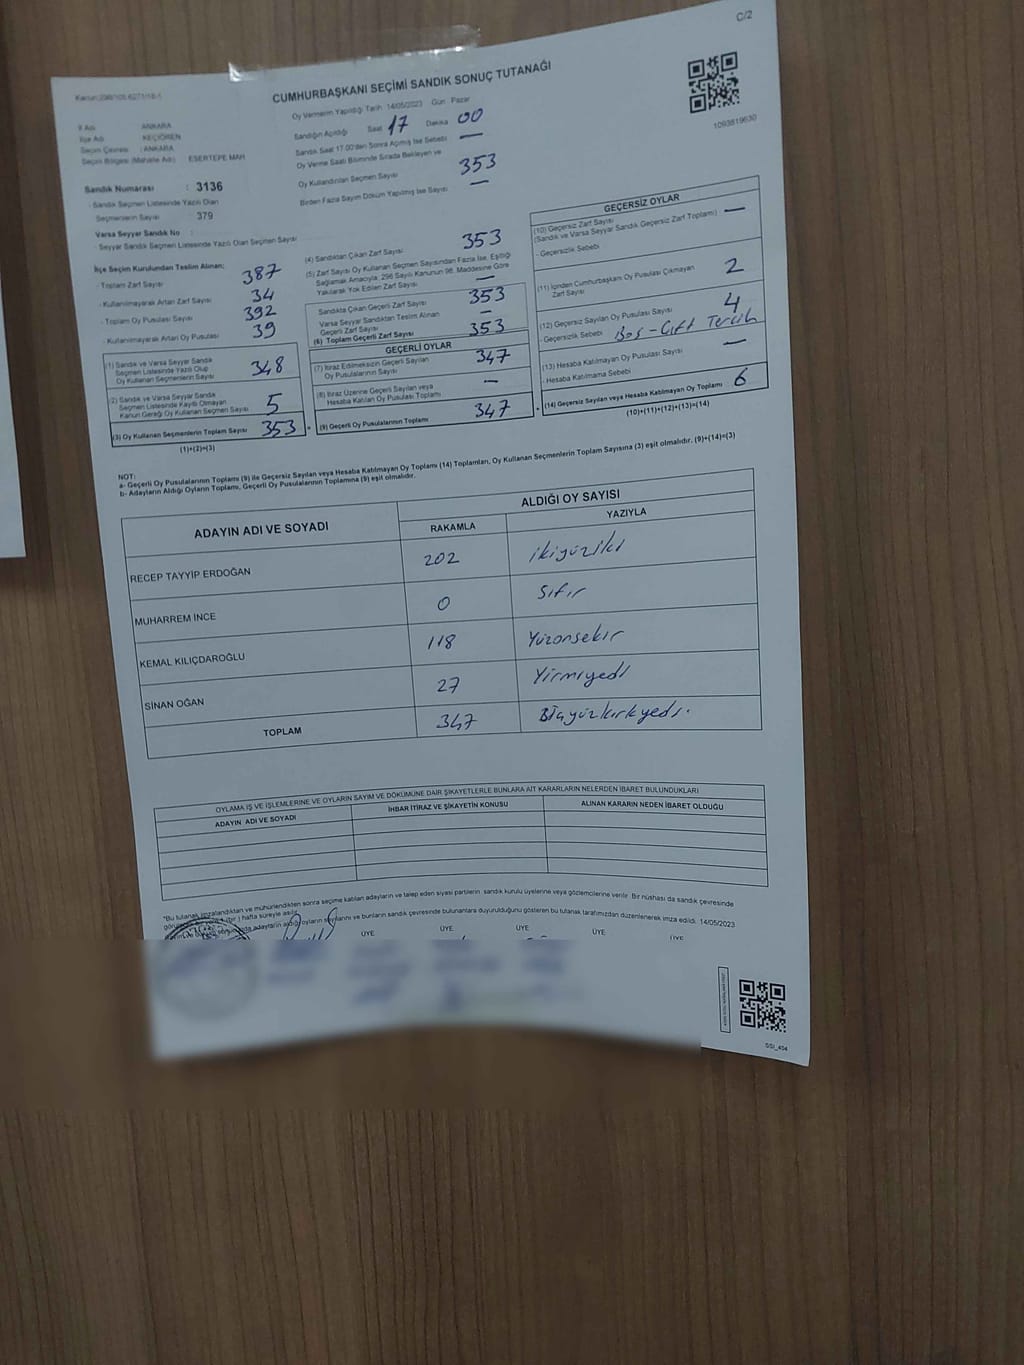 C/2
CUMHURBAŞKANI SEÇİMİ SANDIK SONUÇ TUTANAĞI
1093819630
İl Adı : ANKARA
İlçe Adı : KEÇİÖREN
Seçim Çevresi : ANKARA
Seçim Bölgesi (Mahalle Adı) : ESERTEPE MAH
Sandık Numarası : 3136
- Sandık Seçmen Listesinde Yazılı Olan
Seçmenlerin Sayısı 379
Varsa Seyyar Sandık No :
- Seyyar Sandık Seçmen Listesinde Yazılı Olan Seçmen Sayısı
Oy Vermenin Yapıldığı Tarih 14/05/2023 Gün : Pazar
Sandığın Açıldığı Saat 17 Dakika 00
Sandık Saat 17.00'den Sonra Açılmış İse Sebebi —
Oy Verme Saati Bitiminde Sırada Bekleyen ve
Oy Kullandırılan Seçmen Sayısı 353
Birden Fazla Sayım Döküm Yapılmış İse Sayısı —
İlçe Seçim Kurulundan Teslim Alınan;
- Toplam Zarf Sayısı 387
- Kullanılmayarak Artan Zarf Sayısı 34
- Toplam Oy Pusulası Sayısı 392
- Kullanılmayarak Artan Oy Pusulası 39
(1) Sandık ve Varsa Seyyar Sandık
Seçmen Listesinde Yazılı Olup
Oy Kullanan Seçmenlerin Sayısı 348
(2) Sandık ve Varsa Seyyar Sandık
Seçmen Listesinde Kayıtlı Olmayan
Kanun Gereği Oy Kullanan Seçmen Sayısı 5
(3) Oy Kullanan Seçmenlerin Toplam Sayısı 353
(1)+(2)=(3)
(4) Sandıktan Çıkan Zarf Sayısı 353
(5) Zarf Sayısı Oy Kullanan Seçmen Sayısından Fazla İse, Eşitliği
Sağlamak Amacıyla; 298 Sayılı Kanunun 98. Maddesine Göre
Yakılarak Yok Edilen Zarf Sayısı —
Sandıkta Çıkan Geçerli Zarf Sayısı 353
Varsa Seyyar Sandıktan Teslim Alınan
Geçerli Zarf Sayısı —
(6) Toplam Geçerli Zarf Sayısı 353
GEÇERLİ OYLAR
(7) İtiraz Edilmeksizin Geçerli Sayılan
Oy Pusulalarının Sayısı 347
(8) İtiraz Üzerine Geçerli Sayılan veya
Hesaba Katılan Oy Pusulası Toplamı —
(9) Geçerli Oy Pusulalarının Toplamı 347
GEÇERSİZ OYLAR
(10) Geçersiz Zarf Sayısı
(Sandık ve Varsa Seyyar Sandık Geçersiz Zarf Toplamı) —
- Geçersizlik Sebebi
(11) İçinden Cumhurbaşkanı Oy Pusulası Çıkmayan
Zarf Sayısı 2
(12) Geçersiz Sayılan Oy Pusulası Sayısı 4
- Geçersizlik Sebebi Boş - Çift Tercih
(13) Hesaba Katılmayan Oy Pusulası Sayısı —
- Hesaba Katılmama Sebebi
(14) Geçersiz Sayılan veya Hesaba Katılmayan Oy Toplamı 6
(10)+(11)+(12)+(13)=(14)
NOT:
a- Geçerli Oy Pusulalarının Toplamı (9) ile Geçersiz Sayılan veya Hesaba Katılmayan Oy Toplamı (14) Toplamları, Oy Kullanan Seçmenlerin Toplam Sayısına (3) eşit olmalıdır. (9)+(14)=(3)
b- Adayların Aldığı Oyların Toplamı, Geçerli Oy Pusulalarının Toplamına (9) eşit olmalıdır.
ADAYIN ADI VE SOYADI ALDIĞI OY SAYISI
RAKAMLA YAZIYLA
RECEP TAYYİP ERDOĞAN 202 ikiyüziki
MUHARREM İNCE 0 Sıfır
KEMAL KILIÇDAROĞLU 118 Yüzonsekiz
SİNAN OĞAN 27 Yirmiyedi
TOPLAM 347 Üçyüzkırkyedi.
OYLAMA İŞ VE İŞLEMLERİNE VE OYLARIN SAYIM VE DÖKÜMÜNE DAİR ŞİKAYETLERLE BUNLARA AİT KARARLARIN NELERDEN İBARET BULUNDUKLARI
ADAYIN ADI VE SOYADI İHBAR İTİRAZ VE ŞİKAYETİN KONUSU ALINAN KARARIN NEDEN İBARET OLDUĞU
*Bu tutanak imzalandıktan ve mühürlendikten sonra seçime katılan adayların ve talep eden siyasi partilerin sandık kurulu üyelerine veya gözlemcilerine verilir. Bir nüshası da sandık çevresinde
(bir ) hafta süreyle asılır.
adayların aldığı oyların sayılarını ve bunların sandık çevresinde bulunanlara duyurulduğunu gösteren bu tutanak tarafımızdan düzenlenerek imza edildi. 14/05/2023
ÜYE ÜYE ÜYE ÜYE ÜYE
SSI_404